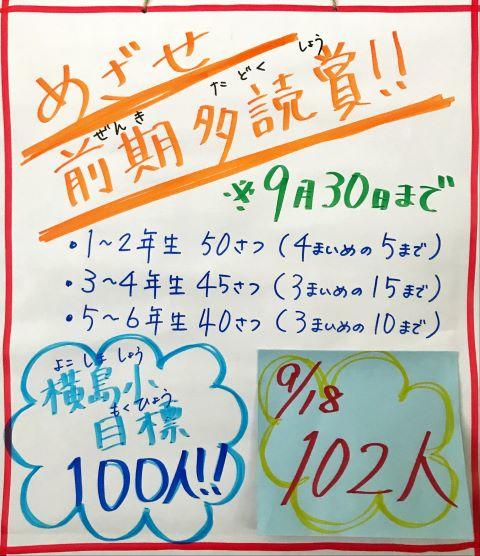 めざせ
ぜんき たどく しょう
前期多読賞!!
※9月30日まで
・1～2年生 50さつ(4まいめの5まで)
・3～4年生 45さつ(3まいめの15まで)
・5～6年生 40さつ(3まいめの10まで)
よこしましょう
横島小
もくひょう
目標
100人!!
9/18
102人